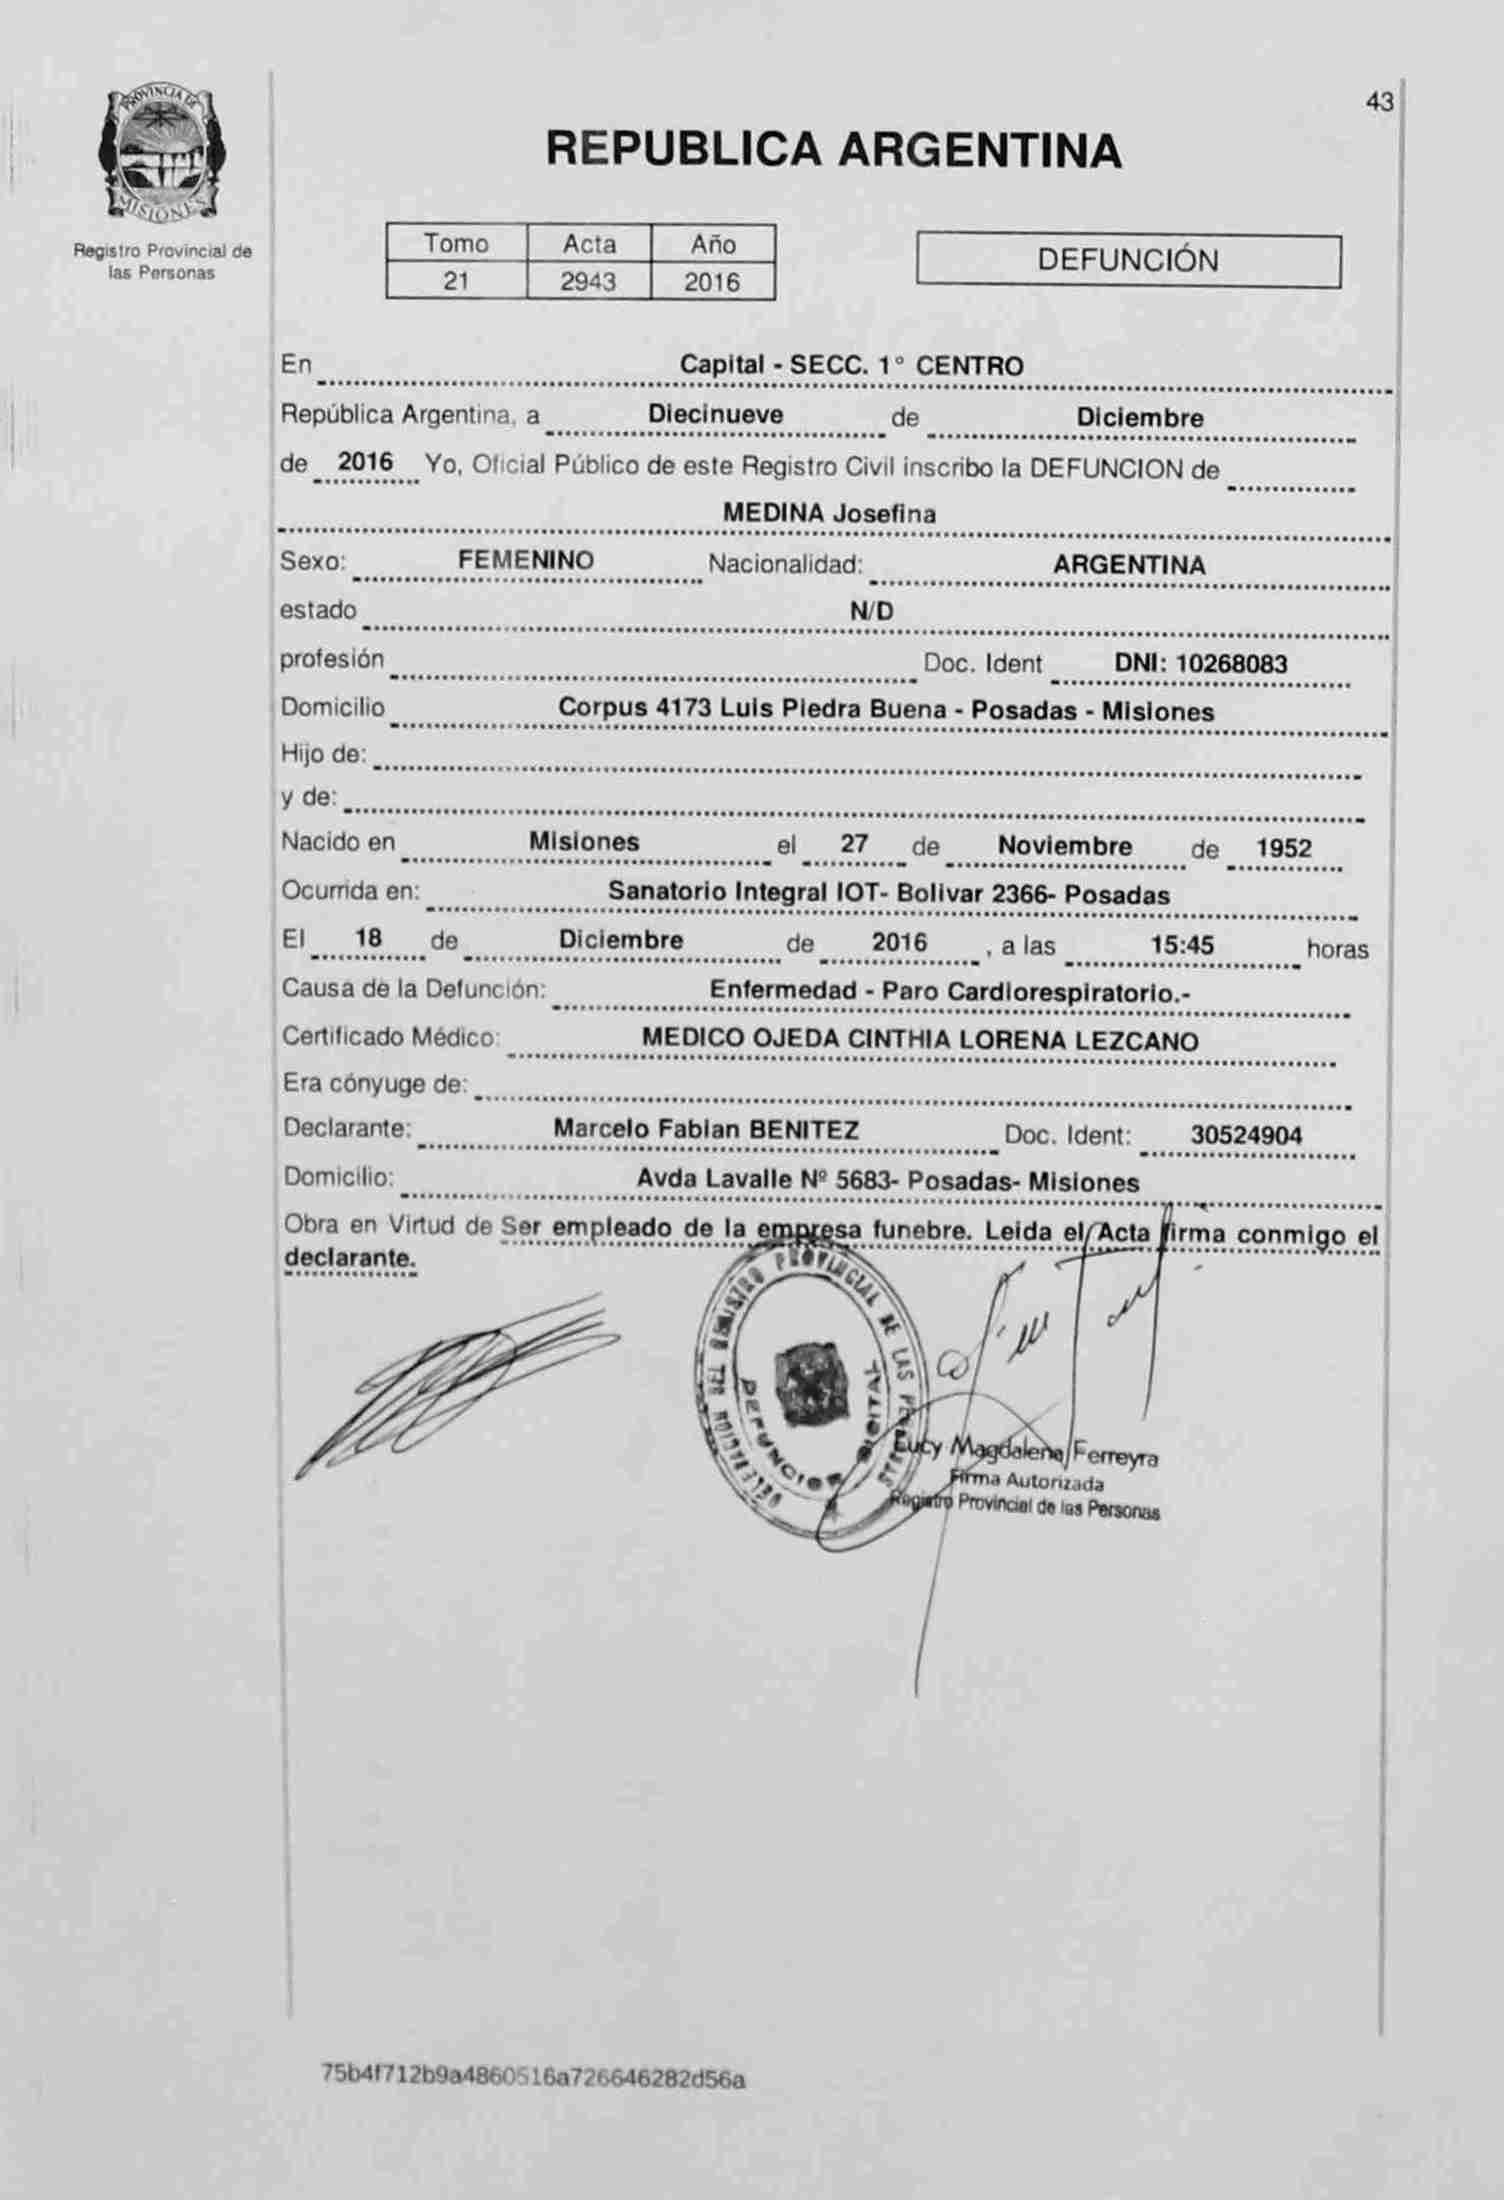 43
PROVINCIA DE
MISIONES
Registro Provincial de
las Personas
REPUBLICA ARGENTINA
Tomo Acta Año
21 2943 2016
DEFUNCIÓN
En Capital - SECC. 1° CENTRO
República Argentina, a Diecinueve de Diciembre
de 2016 Yo, Oficial Público de este Registro Civil inscribo la DEFUNCION de
MEDINA Josefina
Sexo: FEMENINO Nacionalidad: ARGENTINA
estado N/D
profesión Doc. Ident DNI: 10268083
Domicilio Corpus 4173 Luis Piedra Buena - Posadas - Misiones
Hijo de:
y de:
Nacido en Misiones el 27 de Noviembre de 1952
Ocurrida en: Sanatorio Integral IOT- Bolivar 2366- Posadas
El 18 de Diciembre de 2016 , a las 15:45 horas
Causa de la Defunción: Enfermedad - Paro Cardiorespiratorio.-
Certificado Médico: MEDICO OJEDA CINTHIA LORENA LEZCANO
Era cónyuge de:
Declarante: Marcelo Fabian BENITEZ Doc. Ident: 30524904
Domicilio: Avda Lavalle Nº 5683- Posadas- Misiones
Obra en Virtud de Ser empleado de la empresa funebre. Leida el Acta firma conmigo el
declarante.
DELEGACION DEL REGISTRO PROVINCIAL DE LAS PERSONAS
DEFUNCION DIGITAL
Lucy Magdalena Ferreyra
Firma Autorizada
Registro Provincial de las Personas
75b4f712b9a4860516a726646282d56a